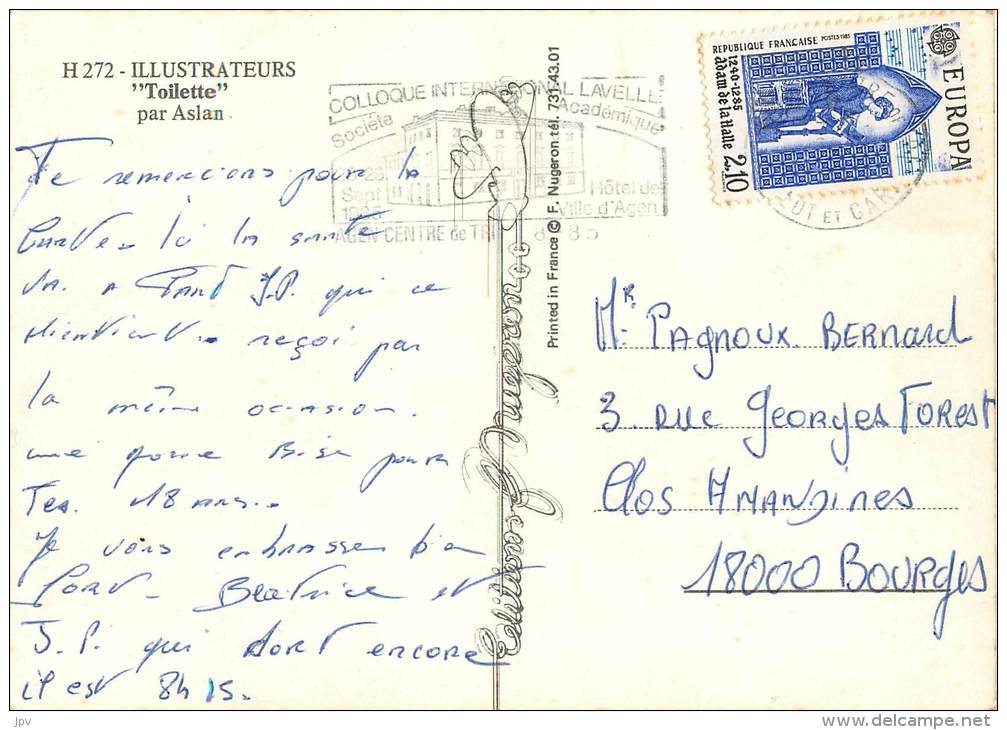 H 272 - ILLUSTRATEURS
"Toilette"
par Aslan
Te remercions pour la
Carte. Ici la santé
va.
J.P. qui ce
reçoi par
la même occasion.
une Bise pour
Tes 18 ans...
Je vous embrassen
Fort - Béatrice et
J.P. qui dort encore
il est 8h 15.
COLLOQUE INTERNATIONAL LAVELLE
Société Académique
Sept
Hôtel de
Ville d'Agen
AGEN CENTRE de TRI
Editions F. Nugeron
Printed in France © F. Nugeron tél. 731.43.01
REPUBLIQUE FRANÇAISE POSTES 1985
1240-1285
Adam de la Halle 2,10
EUROPA
LOT ET GAR
Mr. PAGNOUX BERNARD
3. RUE GEORGES FOREST
Clos AMANDINES
18000 BOURGES
jpv
delcampe.net